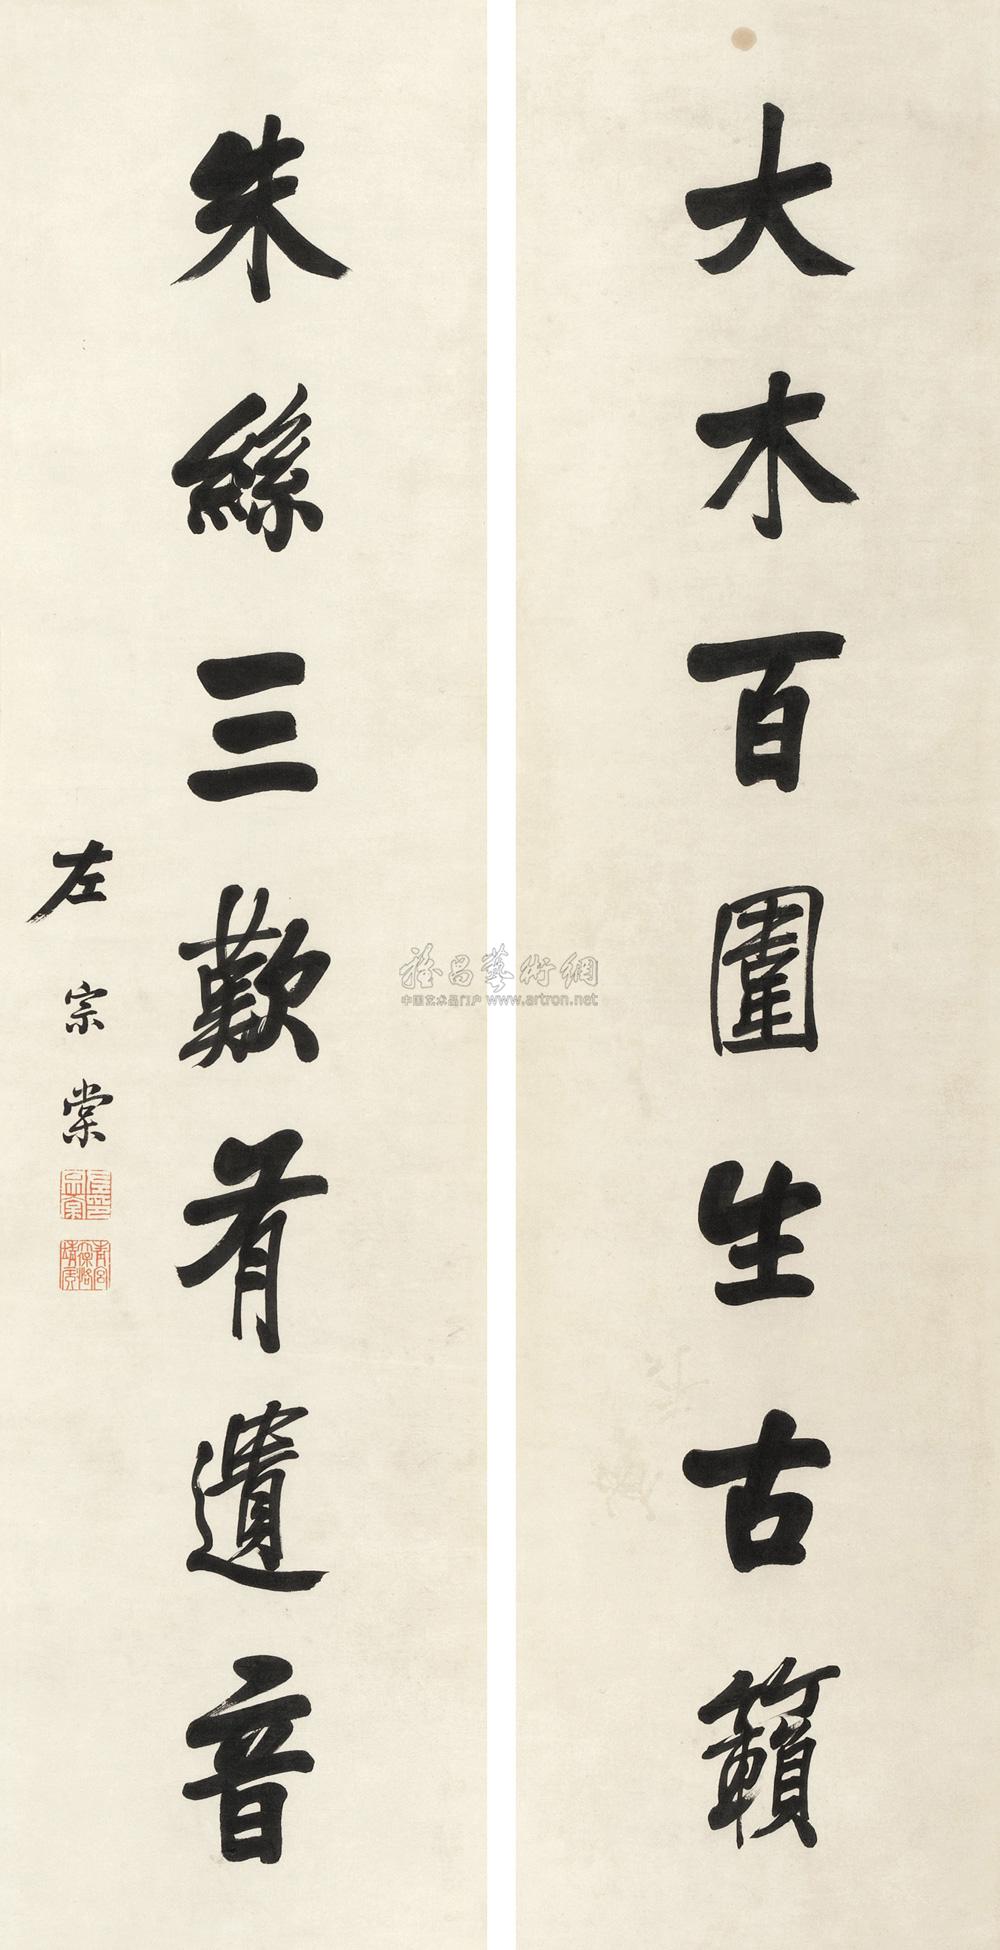 大木百圍生古籟
朱絲三歎有遺音
左宗棠
雅昌藝術網
中国艺术品门户 www.artron.net